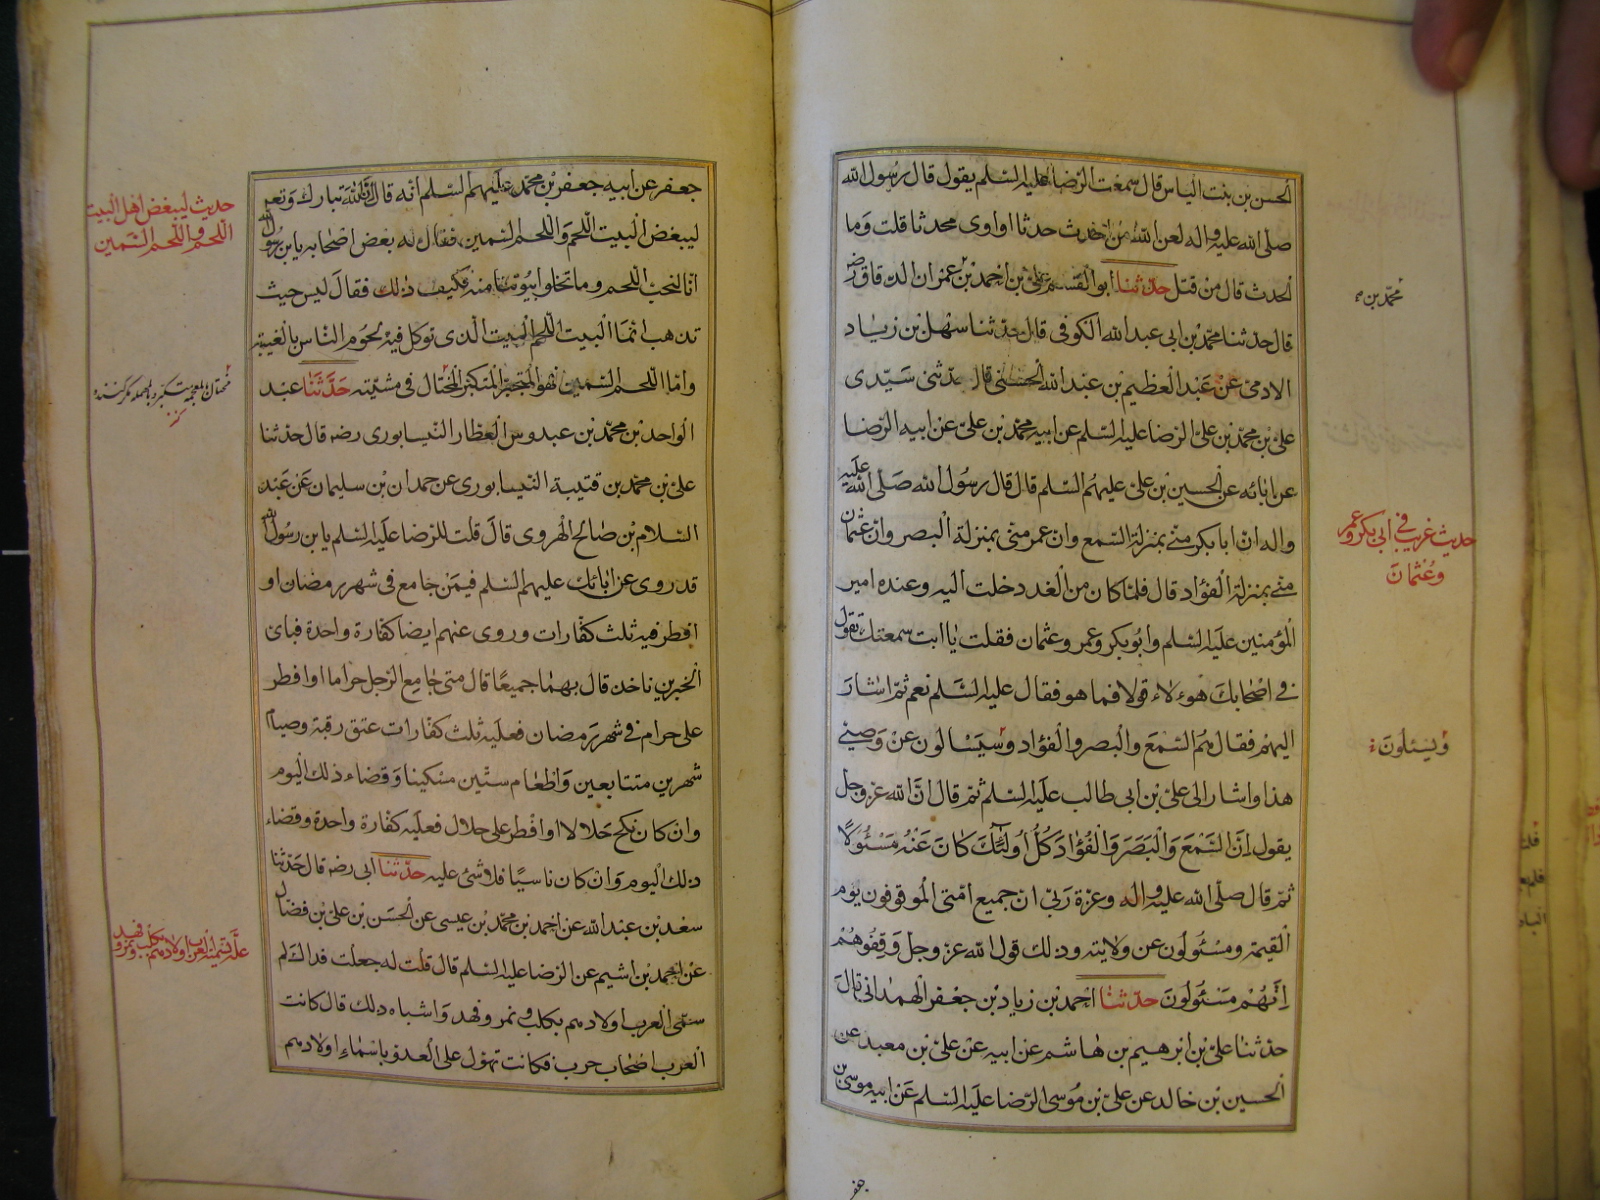 الحسن بن بنت الياس قال سمعت الرضا عليه السلم يقول قال رسول الله
صلى الله عليه واله لعن الله من احدث حدثا او اوى محدثا قلت وما
الحدث قال من قتل حدثنا ابو القسم على بن احمد بن عمران الدقاق رضه
قال حدثنا محمد بن ابى عبد الله الكوفى قال حدثنا سهل بن زياد
الادمى عن عبد العظيم بن عبد الله الحسنى قال حدثنى سيدى
على بن محمد بن على الرضا عليه السلم عن ابيه محمد بن على عن ابيه الرضا
عن ابائه عن الحسين بن على عليهم السلم قال قال رسول الله صلى الله عليه
واله ان ابا بكر منى بمنزلة السمع وان عمر منى بمنزلة البصر وان عثمان
منى بمنزلة الفؤاد قال فلما كان من الغد دخلت اليه وعنده امير
المؤمنين عليه السلم وابو بكر وعمر وعثمان فقلت يا ابت سمعتك تقول
فى اصحابك هؤلاء قولا فما هو فقال عليه السلم نعم ثم اشار
اليهم فقال هم السمع والبصر والفؤاد وسيسالون عن وصيى
هذا واشار الى على بن ابى طالب عليه السلم ثم قال ان الله عز وجل
يقول ان السمع والبصر والفؤاد كل اولئك كان عنه مسئولا
ثم قال صلى الله عليه واله وعزة ربى ان جميع امتى الموقوفون يوم
القيمة ومسئولون عن ولايته وذلك قول الله عز وجل وقفوهم
انهم مسئولون حدثنا احمد بن زياد بن جعفر الهمدانى قال
حدثنا على بن ابرهيم بن هاشم عن ابيه عن على بن معبد عن
الحسين بن خالد عن على بن موسى الرضا عليه السلم عن ابيه موسى بن
جعفر
محمد بن
حديث غريب فى ابى بكر وعمر
وعثمان
ويسئلون
جعفر عن ابيه جعفر بن محمد عليهم السلم انه قال ان الله تبارك وتعه
ليبغض البيت اللحم واللحم السمين فقال له بعض اصحابه يا بن رسول الله
انا لنحب اللحم وما تخلو ابيوتنا منه فكيف ذلك فقال ليس حيث
تذهب انما البيت اللحم البيت الذى توكل فيه لحوم الناس بالغيبة
واما اللحم السمين فهو المتجبر المتكبر المختال فى مشيته حدثنا عبد
الواحد بن محمد بن عبدوس العطار النيسابورى رضه قال حدثنا
على بن محمد بن قتيبة النيسابورى عن حمدان بن سليمان عن عبد
السلام بن صالح الهروى قال قلت للرضا عليه السلم يا بن رسول الله
قد روى عن ابائك عليهم السلم فيمن جامع فى شهر رمضان او
افطر فيه ثلث كفارات وروى عنهم ايضا كفارة واحدة فباى
الخبرين ناخذ قال بهما جميعا قال متى جامع الرجل حراما او افطر
على حرام فى شهر رمضان فعليه ثلث كفارات عتق رقبة وصيام
شهرين متتابعين واطعام ستين مسكينا وقضاء ذلك اليوم
وان كان نكح حلالا او افطر على حلال فعليه كفارة واحدة وقضاء
ذلك اليوم وان كان ناسيا فلا شئ عليه حدثنا ابى رضه قال حدثنا
سعد بن عبد الله عن احمد بن محمد بن عيسى عن الحسن بن على بن فضال
عن احمد بن اشيم عن الرضا عليه السلم قال قلت له جعلت فداك لم
سمى العرب اولادهم بكلب ونمر وفهد واشباه ذلك قال كانت
العرب اصحاب حرب فكانت تهول على العدو باسماء اولادهم
حديث ليبغض اهل البيت
اللحم واللحم السمين
علة تسمية العرب اولادهم بكلب وفهد ونمر